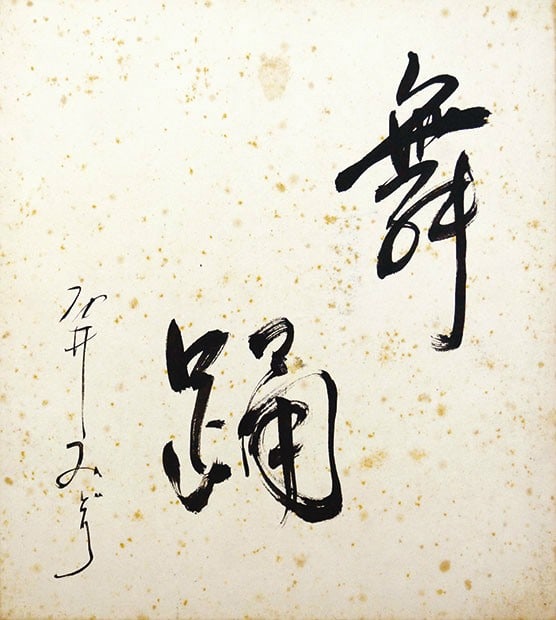 舞
踊
石井みどり